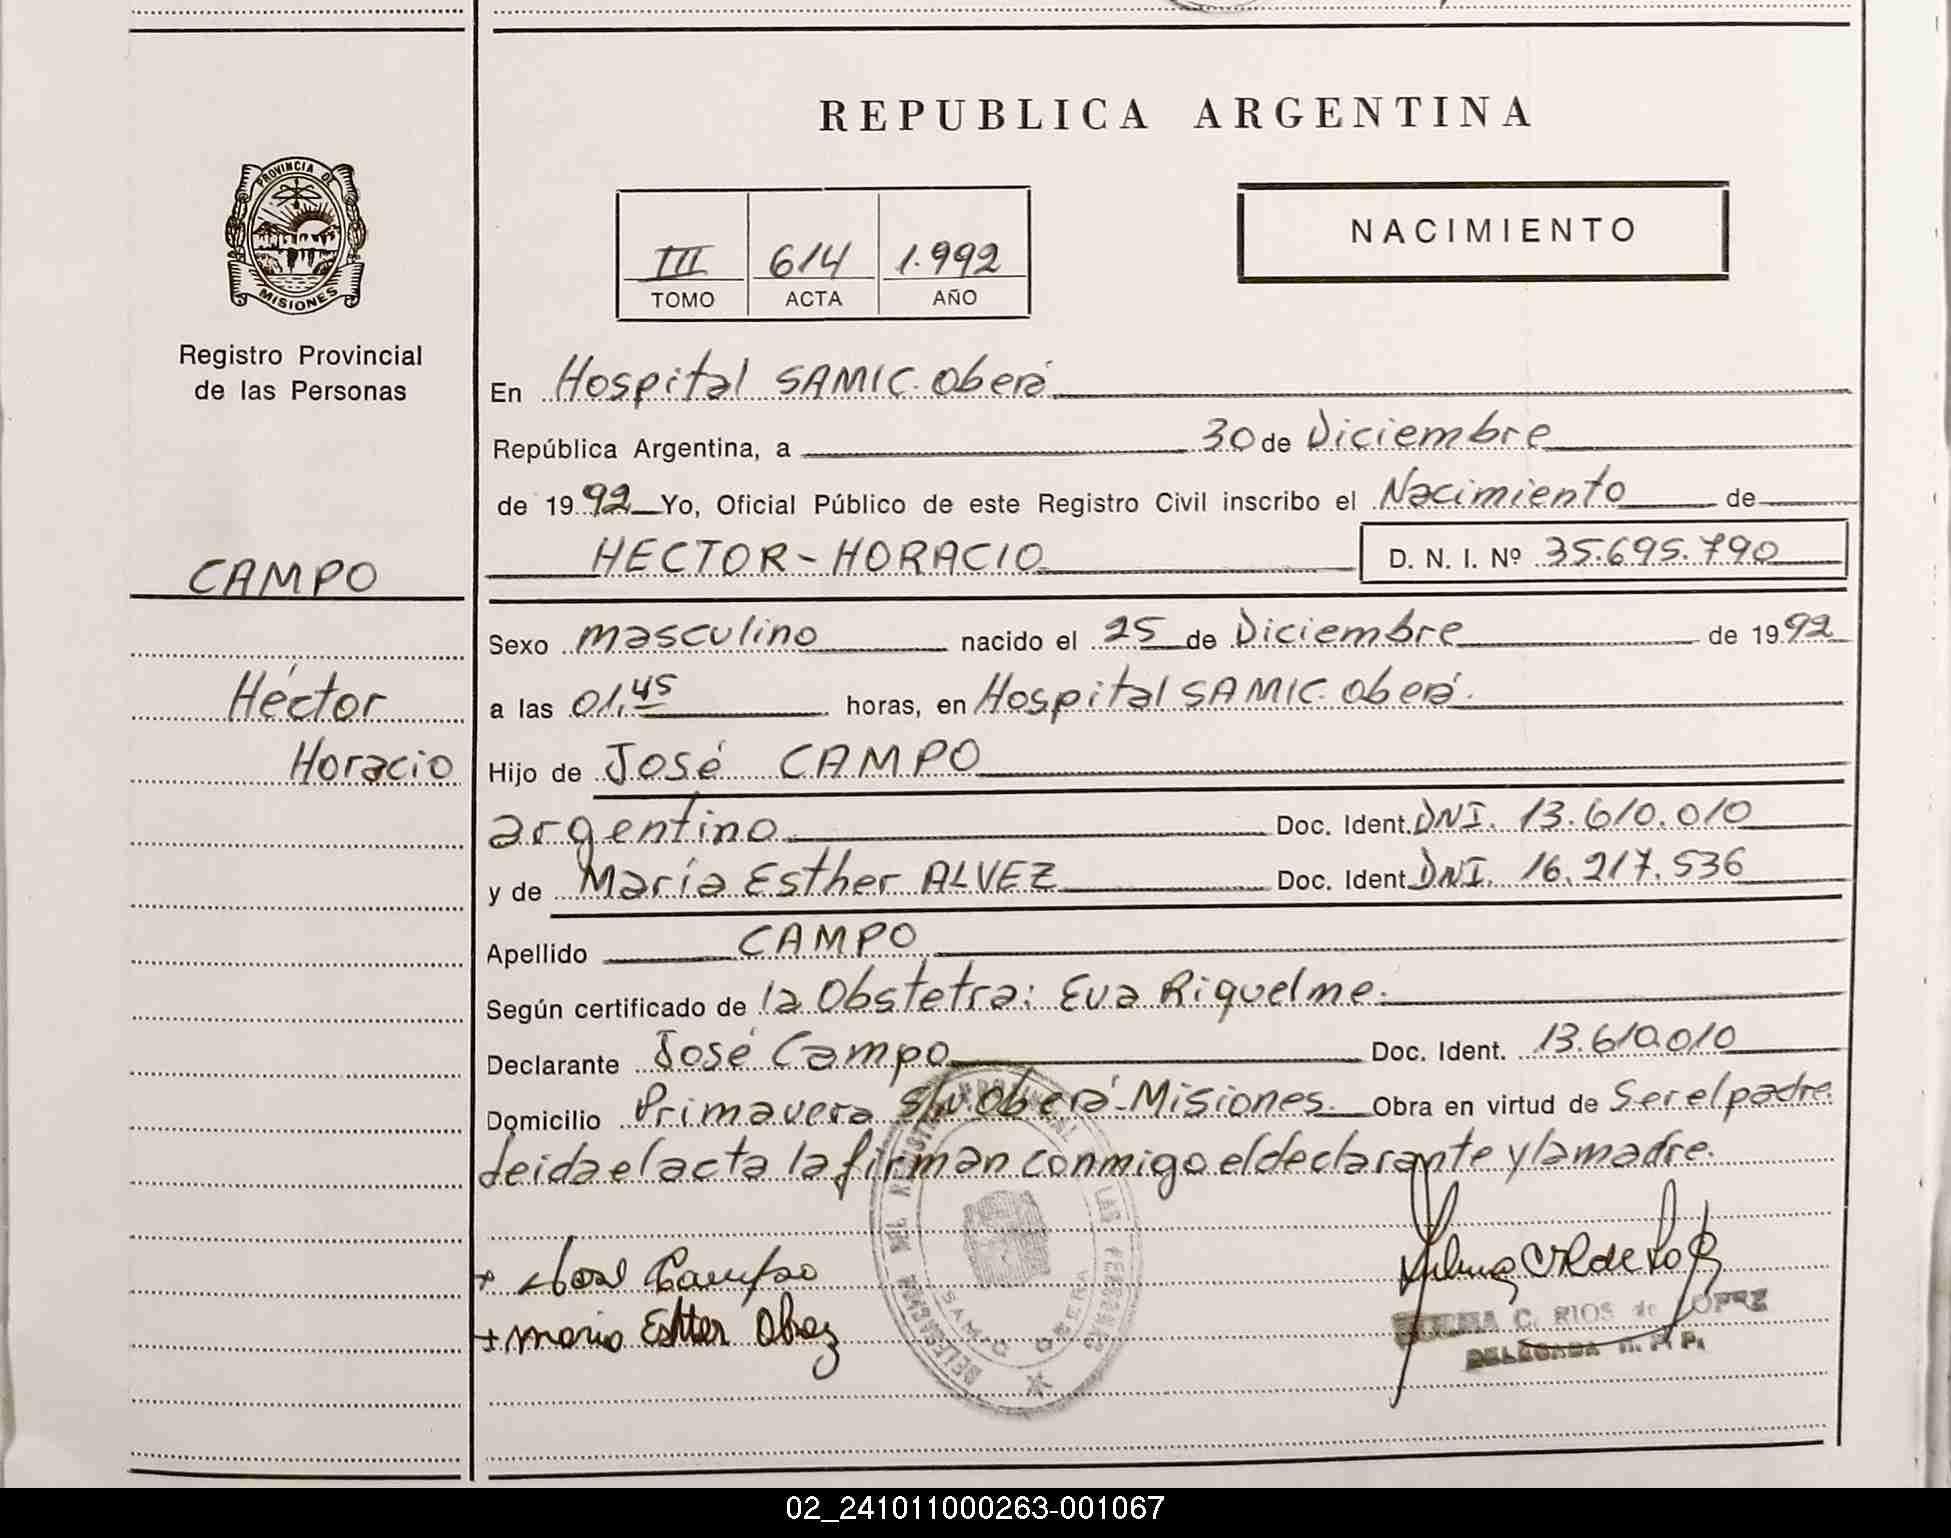 REPUBLICA ARGENTINA
PROVINCIA DE
MISIONES
Registro Provincial
de las Personas
NACIMIENTO
III 614 1.992
TOMO ACTA AÑO
En Hospital SAMIC. Oberá
República Argentina, a 30 de Diciembre
de 1992 Yo, Oficial Público de este Registro Civil inscribo el Nacimiento de
HECTOR-HORACIO D. N. I. Nº 35.695.790
CAMPO
Héctor
Horacio
Sexo masculino nacido el 25 de Diciembre de 1992
a las 01,45 horas, en Hospital SAMIC. Oberá.
Hijo de José CAMPO
argentino Doc. Ident. DNI. 13.610.010
y de María Esther ALVEZ Doc. Ident. DNI. 16.217.536
Apellido CAMPO
Según certificado de la Obstetra: Eva Riquelme.
Declarante José Campo Doc. Ident. 13.610.010
Domicilio Primavera S/N. Oberá-Misiones. Obra en virtud de Ser el padre.
Leida el acta la firman conmigo el declarante y la madre.
+ Jose Campo
+ Maria Esther Alvez
C. RIOS de LOPEZ
DELEGADA R. P. P.
DELEGACION DEL REGISTRO PROVINCIAL DE LAS PERSONAS
SAMIC OBERA
02_241011000263-001067